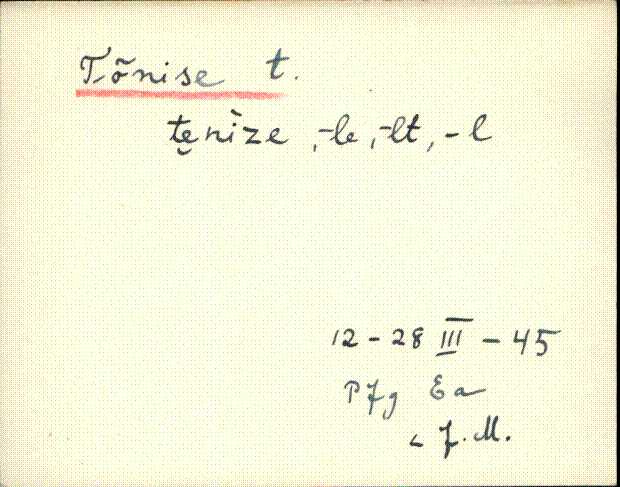 Tõnise t.
te̮nìze, -le, -lt, -l
12 - 28 III - 45
Pfg Ea
< J. M.